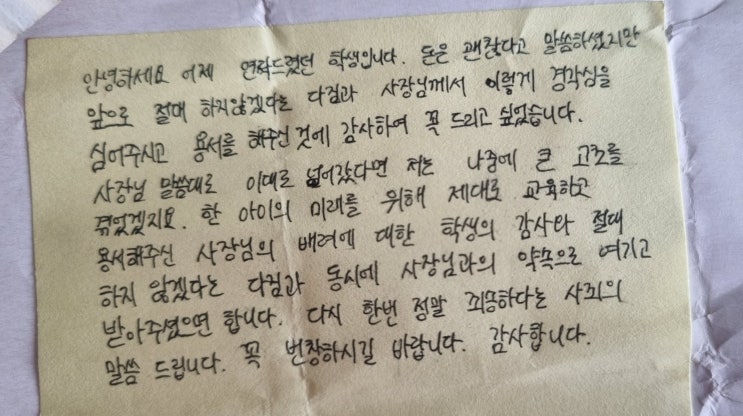 안녕하세요 어제 연락드렸던 학생입니다. 돈은 괜찮다고 말씀하셨지만
앞으로 절대 하지않겠다는 다짐과 사장님께서 이렇게 경각심을
심어주시고 용서를 해주신 것에 감사하여 꼭 드리고 싶었습니다.
사장님 말씀대로 이대로 넘어갔다면 저는 나중에 큰 고초를
겪었겠지요. 한 아이의 미래를 위해 제대로 교육하고
용서해주신 사장님의 배려에 대한 학생의 감사와 절대
하지 않겠다는 다짐과 동시에 사장님과의 약속으로 여기고
받아주셨으면 합니다. 다시 한번 정말 죄송하다는 사죄의
말씀 드립니다. 꼭 번창하시길 바랍니다. 감사합니다.